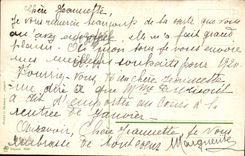 Chère Jeannette
Je vous remercie beaucoup de la carte que vous
m'avez envoyée elle m'a fait grand
plaisir. A mon tour je vous envoie
mes meilleurs souhaits pour 1920.
Pourriez-vous, ma chère Jeannette
me dire ce que Mme
a dit d'emporter au Cours à la
rentrée de Janvier.
Au revoir, Chère Jeannette, je vous
embrasse de tout coeur Marguerite